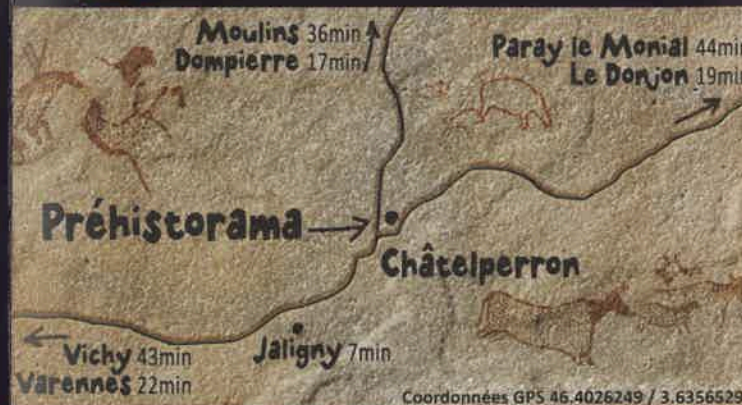 Moulins 36min
Dompierre 17min
Paray le Monial 44min
Le Donjon 19min
Préhistorama
Châtelperron
Jaligny 7min
Vichy 43min
Varennes 22min
Coordonnées GPS 46.4026249 / 3.6356529